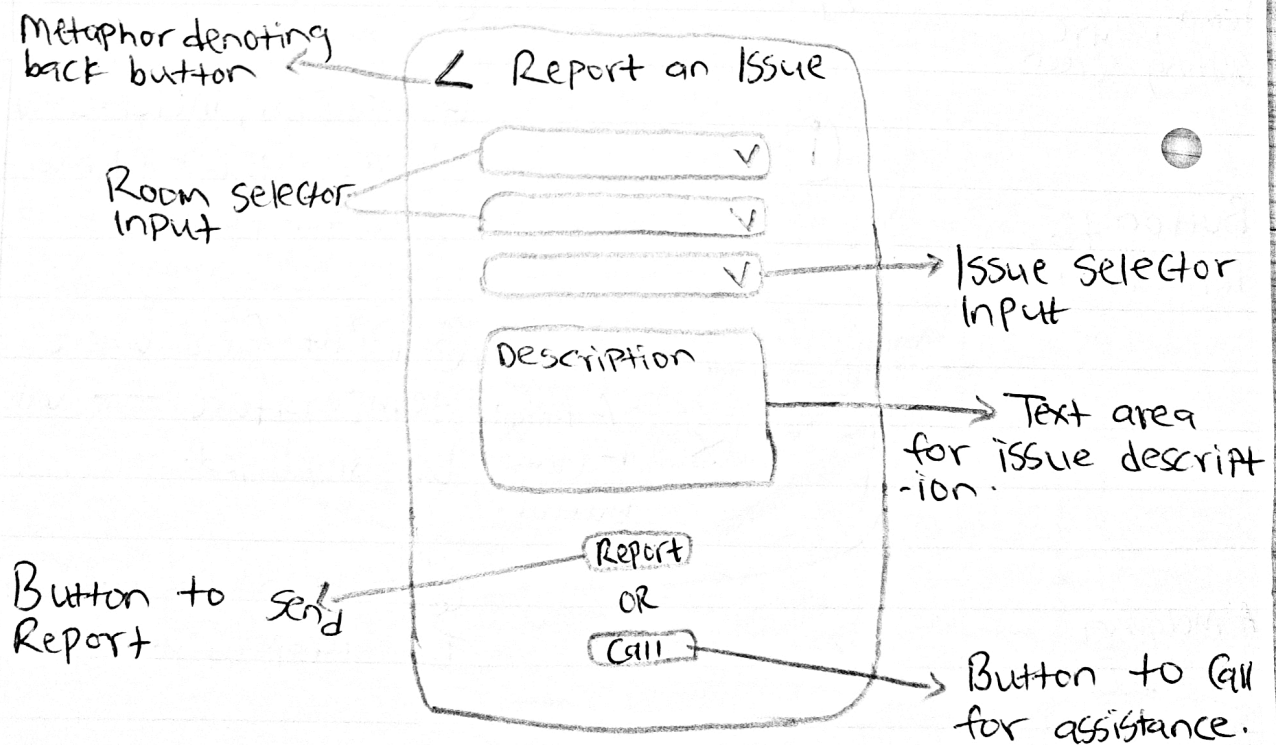 Metaphor denoting
back button
< Report an Issue
Room selector
Input
Issue Selector
Input
Description
Text area
for issue descript
-ion.
Report
Button to send
Report
OR
Call
Button to Call
for assistance.